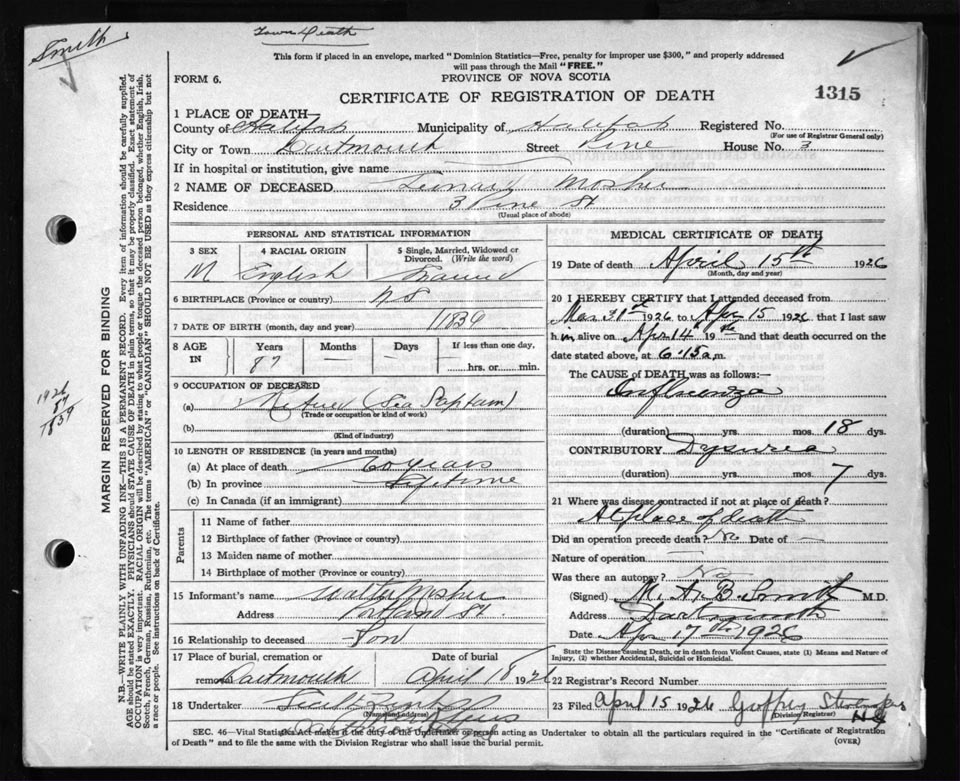 Smith
Town Death
This form if placed in an envelope, marked "Dominion Statistics—Free, penalty for improper use $300," and properly addressed
will pass through the Mail "FREE."
FORM 6.
PROVINCE OF NOVA SCOTIA
CERTIFICATE OF REGISTRATION OF DEATH
1315
1 PLACE OF DEATH
County of Halifax Municipality of Halifax Registered No.
(For use of Registrar General only)
City or Town Dartmouth Street Pine House No. 3
If in hospital or institution, give name
2 NAME OF DECEASED Mosher
Residence 3 Pine St
(Usual place of abode)
PERSONAL AND STATISTICAL INFORMATION
3 SEX 4 RACIAL ORIGIN 5 Single, Married, Widowed or
Divorced. (Write the word)
M English Married
6 BIRTHPLACE (Province or country) NS
7 DATE OF BIRTH (month, day and year) 1839
8 AGE IN Years Months Days If less than one day,
87 — — hrs. or min.
9 OCCUPATION OF DECEASED
(a) Retired (Sea Captain)
(Trade or occupation or kind of work)
(b)
(Kind of industry)
10 LENGTH OF RESIDENCE (in years and months)
(a) At place of death 60 years
(b) In province Lifetime
(c) In Canada (if an immigrant)
Parents
11 Name of father
12 Birthplace of father (Province or country)
13 Maiden name of mother
14 Birthplace of mother (Province or country)
15 Informant's name Walter Mosher
Address Portland St.
16 Relationship to deceased Son
17 Place of burial, cremation or Date of burial
removal Dartmouth April 18 1926
18 Undertaker
(Name and address)
MEDICAL CERTIFICATE OF DEATH
19 Date of death April 15th 1926
(Month, day and year)
20 I HEREBY CERTIFY that I attended deceased from
Mar 31st 1926 to Apr 15 1926 that I last saw
him alive on Apr 14th 19 and that death occurred on the
date stated above, at 6.15 a.m.
The CAUSE of DEATH was as follows:—
Influenza
(duration) yrs. mos. 18 dys.
CONTRIBUTORY Dysuria
(duration) yrs. mos. 7 dys.
21 Where was disease contracted if not at place of death?
At place of death
Did an operation precede death? No Date of —
Nature of operation —
Was there an autopsy? No
(Signed) M. A. B. Smith M.D.
Address Dartmouth
Date Apr 17th 1926
State the Disease causing Death, or in death from Violent Causes, state (1) Means and Nature of
Injury, (2) whether Accidental, Suicidal or Homicidal.
22 Registrar's Record Number
23 Filed April 15 1926
(Division Registrar)
SEC. 46—Vital Statistics Act makes it the duty of the Undertaker or person acting as Undertaker to obtain all the particulars required in the "Certificate of Registration
of Death" and to file the same with the Division Registrar who shall issue the burial permit.
(OVER)
MARGIN RESERVED FOR BINDING
N.B.—WRITE PLAINLY WITH UNFADING INK—THIS IS A PERMANENT RECORD. Every item of information should be carefully supplied.
AGE should be stated EXACTLY. PHYSICIANS should STATE CAUSE OF DEATH in plain terms, so that it may be properly classified. Exact statement of
OCCUPATION is very important. RACIAL ORIGIN will be described by stating to what people or tongue the deceased person belonged, whether English, Irish,
Scotch, French, German, Russian, Ruthenian, etc. The terms "AMERICAN" or "CANADIAN" SHOULD NOT BE USED as they express citizenship but not
a race or people. See instructions on back of Certificate.
1926
87
1839